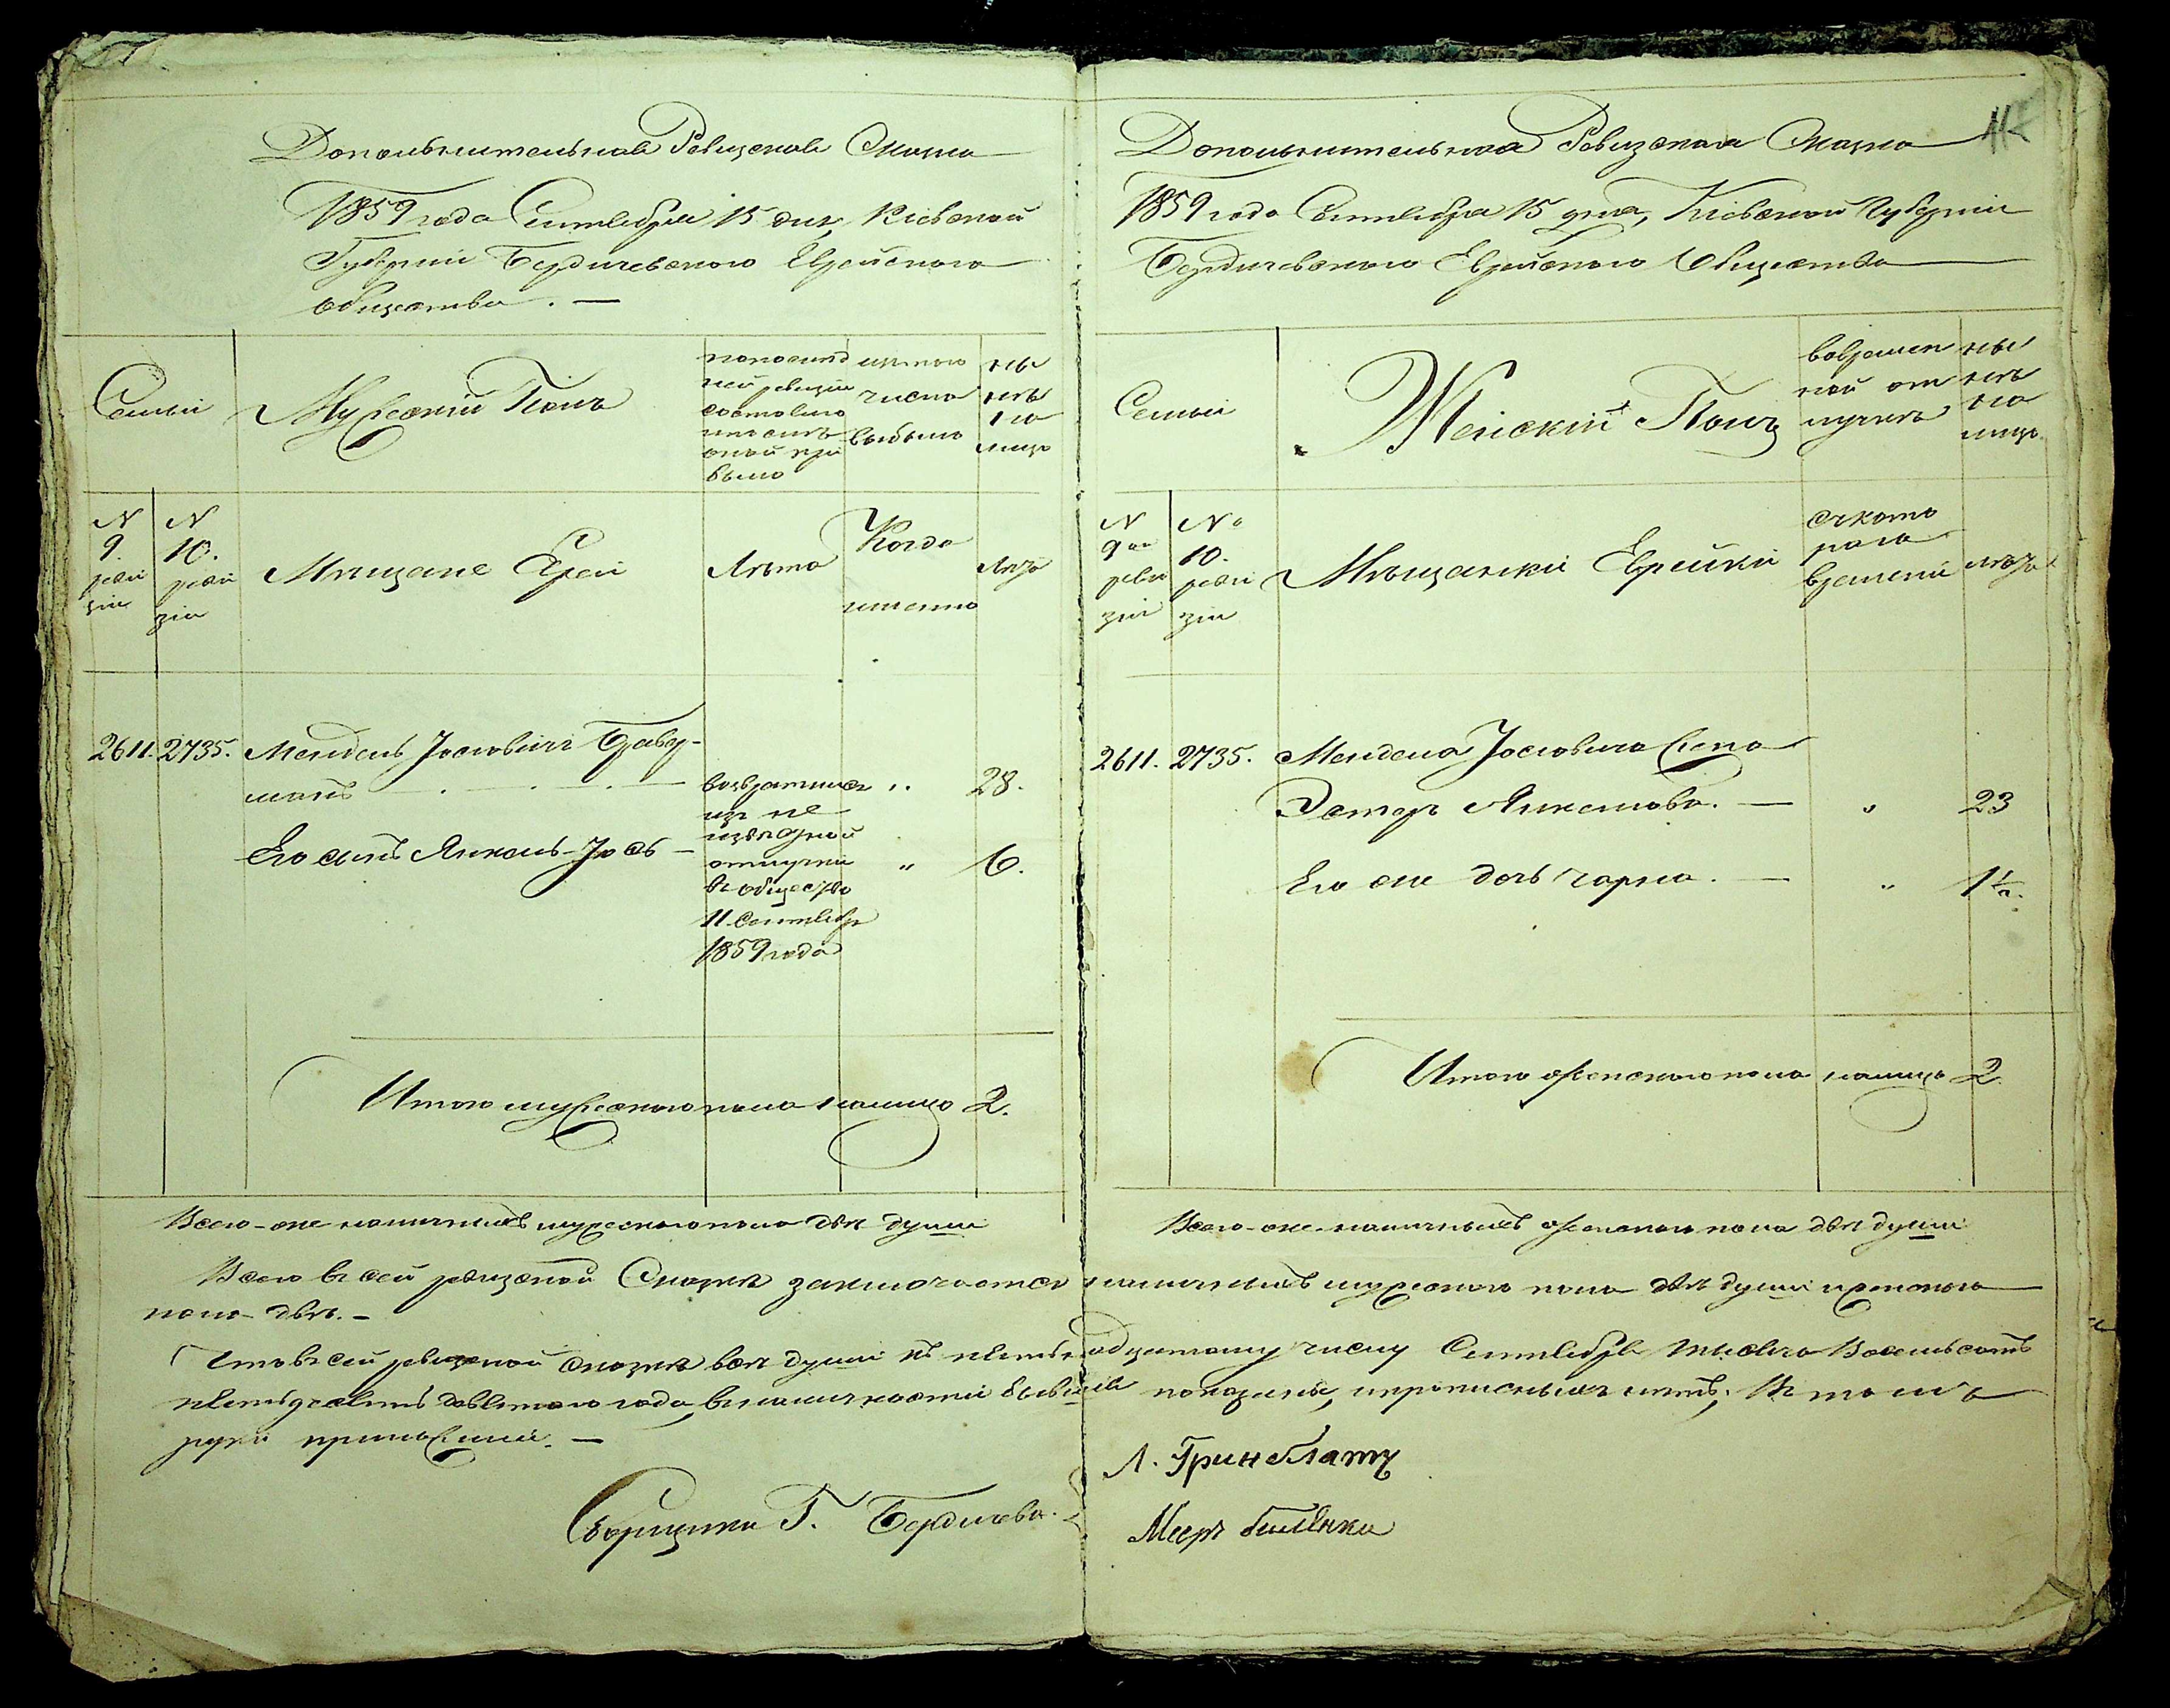 Дополнительная Ревизская Сказка
1859 года Сентября 15 дня, Кіевской
Губерніи Бердичевского Еврейского
общества. —
Семьи
Мужескій Полъ
по послѣд
ней ревизіи
состояло
или послѣ
оной при
было
изъ того
числа
выбыло
Ны
нѣ
на
лицо
N
9.
реви
зіи
N
10.
реви
зіи
Мѣщане Евреи
Лѣта
Когда
именно
Лѣта
2611. 2735. Мендель Іосіовичъ
манъ — 28.
Его сынъ Янкель-Іось — „ 6.
возвратился
изъ не
извѣстной
отлучки
въ общество
11 Сентября
1859 года
Итого мужескаго пола на лицо 2.
Всего-же наличныхъ мужескаго пола двѣ души
Дополнительная Ревизская Сказка
1859 года Сентября 15 дня, Кіевской Губерніи
Бердичевского Еврейского Общества
Семьи
Женскій Полъ
во времен
ной от
лучкѣ
ны
нѣ
на
лицо
N
9ой
реви
зіи
No
10.
реви
зіи
Мѣщанки Еврейки
съ кото
раго
времени
лѣта
2611. 2735. Менделя Іосіовича жена
Эстеръ Янкелова. — „ 23
Его же дочь Чарна. — „ 1½.
Итого женскаго пола на лицо 2.
Всего-же наличныхъ женскаго пола двѣ души
Всего въ сей ревизской Сказкѣ заключается наличныхъ мужескаго пола двѣ души и женского
пола двѣ. —
Что въ сей ревизской сказкѣ всѣ души къ пятьнадцатому числу Сентября тысяча восемьсотъ
пятьдесятъ девятого года, въ наличности бывшія показаны, и прописныхъ нѣтъ; Въ томъ
руки приложили. —
Сборщики Г. Бердичева.
Л. Гринблатъ
Мееръ Билѣнки